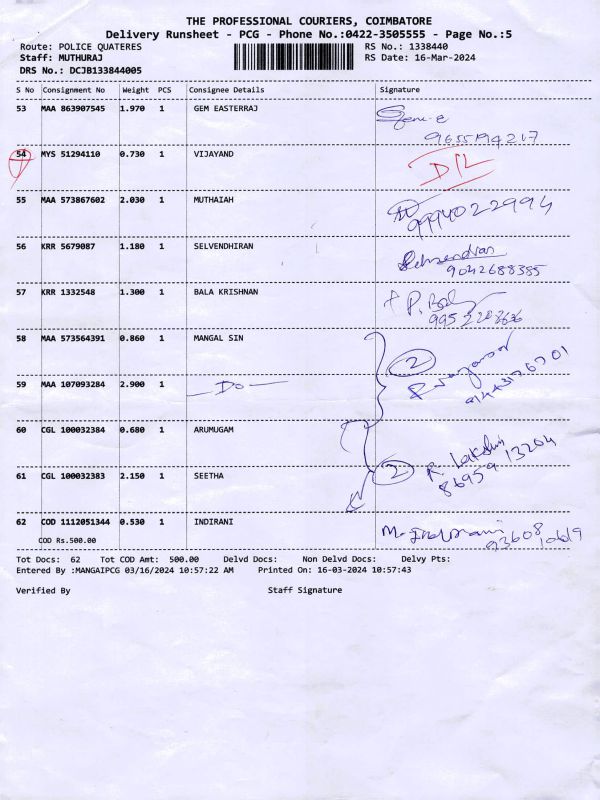 THE PROFESSIONAL COURIERS, COIMBATORE
Delivery Runsheet - PCG - Phone No.:0422-3505555 - Page No.:5
Route: POLICE QUATERES RS No.: 1338440
Staff: MUTHURAJ RS Date: 16-Mar-2024
DRS No.: DCJB133844005
S No Consignment No Weight PCS Consignee Details Signature
53 MAA 863907545 1.970 1 GEM EASTERRAJ
9655194217
54 MYS 51294110 0.730 1 VIJAYAND D/L
55 MAA 573867602 2.030 1 MUTHAIAH
9994022994
56 KRR 5679087 1.180 1 SELVENDHIRAN
9042688385
57 KRR 1332548 1.300 1 BALA KRISHNAN P. Bal
58 MAA 573564391 0.860 1 MANGAL SIN 2
59 MAA 107093284 2.900 1 — Do —
60 CGL 100032384 0.680 1 ARUMUGAM
61 CGL 100032383 2.150 1 SEETHA 2 R. Lakshmi
86959 13204
62 COD 1112051344 0.530 1 INDIRANI
COD Rs.500.00
Tot Docs: 62 Tot COD Amt: 500.00 Delvd Docs: Non Delvd Docs: Delvy Pts:
Entered By :MANGAIPCG 03/16/2024 10:57:22 AM Printed On: 16-03-2024 10:57:43
Verified By Staff Signature